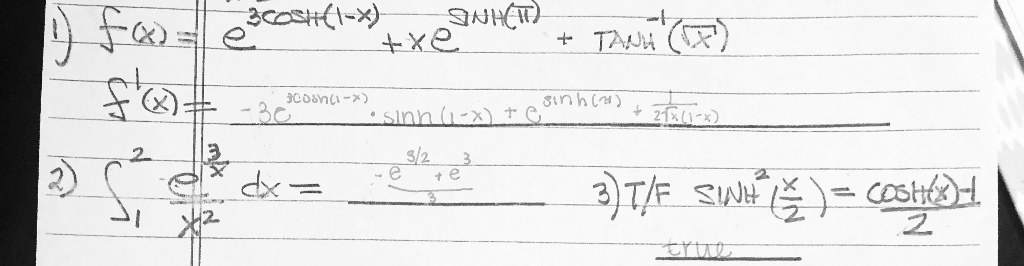 1) f(x) = e^(3COSH(1-x)) + xe^(SINH(π)) + TANH⁻¹(√x)
f'(x) = -3e^(3cosh(1-x)) · sinh(1-x) + e^(sinh(π)) + 1/(2√x(1-x))
2) ∫₁² e^(3/x)/x² dx = (-e^(3/2) + e^3)/3 3) T/F SINH²(x/2) = (COSH(x)-1)/2
true